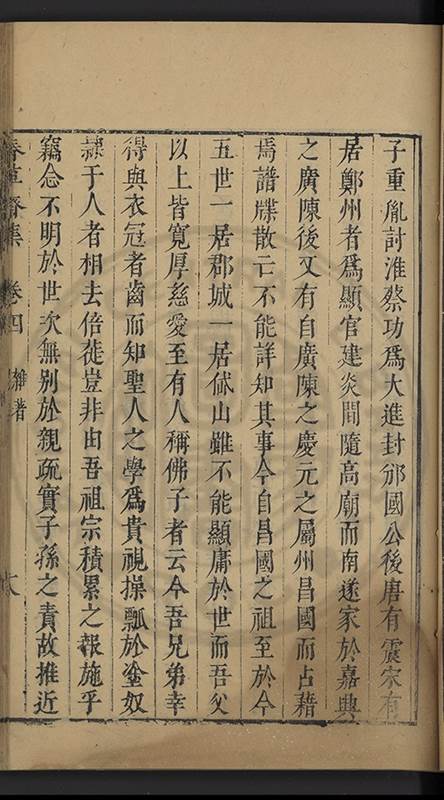 子重胤討淮蔡功爲大進封邠國公後唐有震宋有
居鄭州者爲顯官建炎間隨高廟而南遂家於嘉興
之廣陳後又有自廣陳之慶元之屬州昌國而占藉
焉譜牒散亡不能詳知其事今自昌國之祖至於今
五世一居郡城一居倧山雖不能顯庸於世而吾父
以上皆寬厚慈愛至有人稱佛子者云今吾兄弟幸
得與衣冠者齒而知聖人之學爲貴視操瓢於塗奴
隸于人者相去倍蓰豈非由吾祖宗積累之報施乎
竊念不明於世次無别於親疏實子孫之責故推近
春草齋集 卷四 雜著